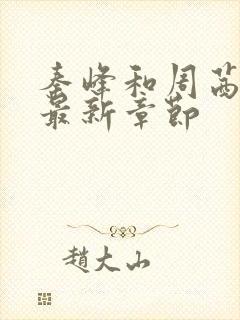 秦峰和周茜
最新章节
赵大山